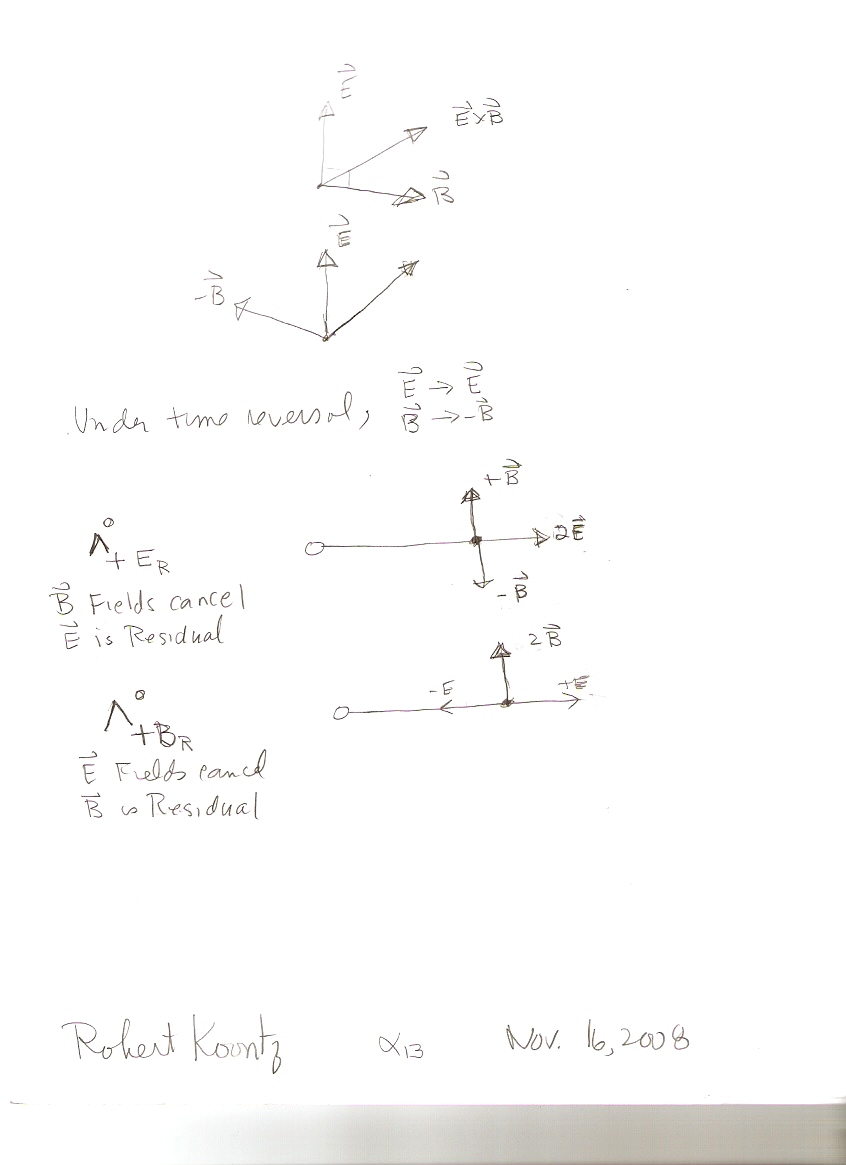 E⃗
E⃗×B⃗
B⃗
E⃗
-B⃗
E⃗ → E⃗
Under time reversal, B⃗ → -B⃗
+B⃗
Λ° + E_R
2E⃗
-B⃗
B⃗ Fields cancel
E⃗ is Residual
2B⃗
-E
+E
Λ° +B_R
E⃗ Fields cancel
B⃗ is Residual
Robert Koontz α₁₃ Nov. 16, 2008